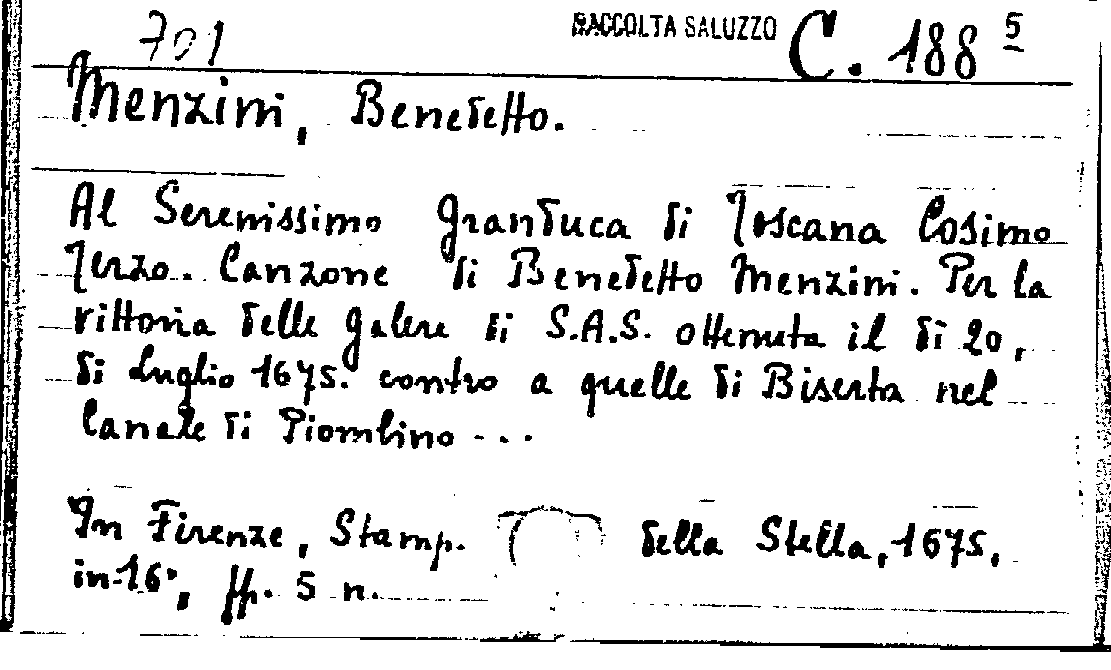 701 RACCOLTA SALUZZO C. 188 5
Menzini, Benedetto.
Al Serenissimo Granduca di Toscana Cosimo
Terzo. Canzone di Benedetto Menzini. Per la
vittoria delle galere di S.A.S. ottenuta il di 20,
di Luglio 1675. contro a quelle di Biserta nel
Canale di Piombino ...
In Firenze, Stamp. della Stella, 1675,
in-16°, ff. 5 n.